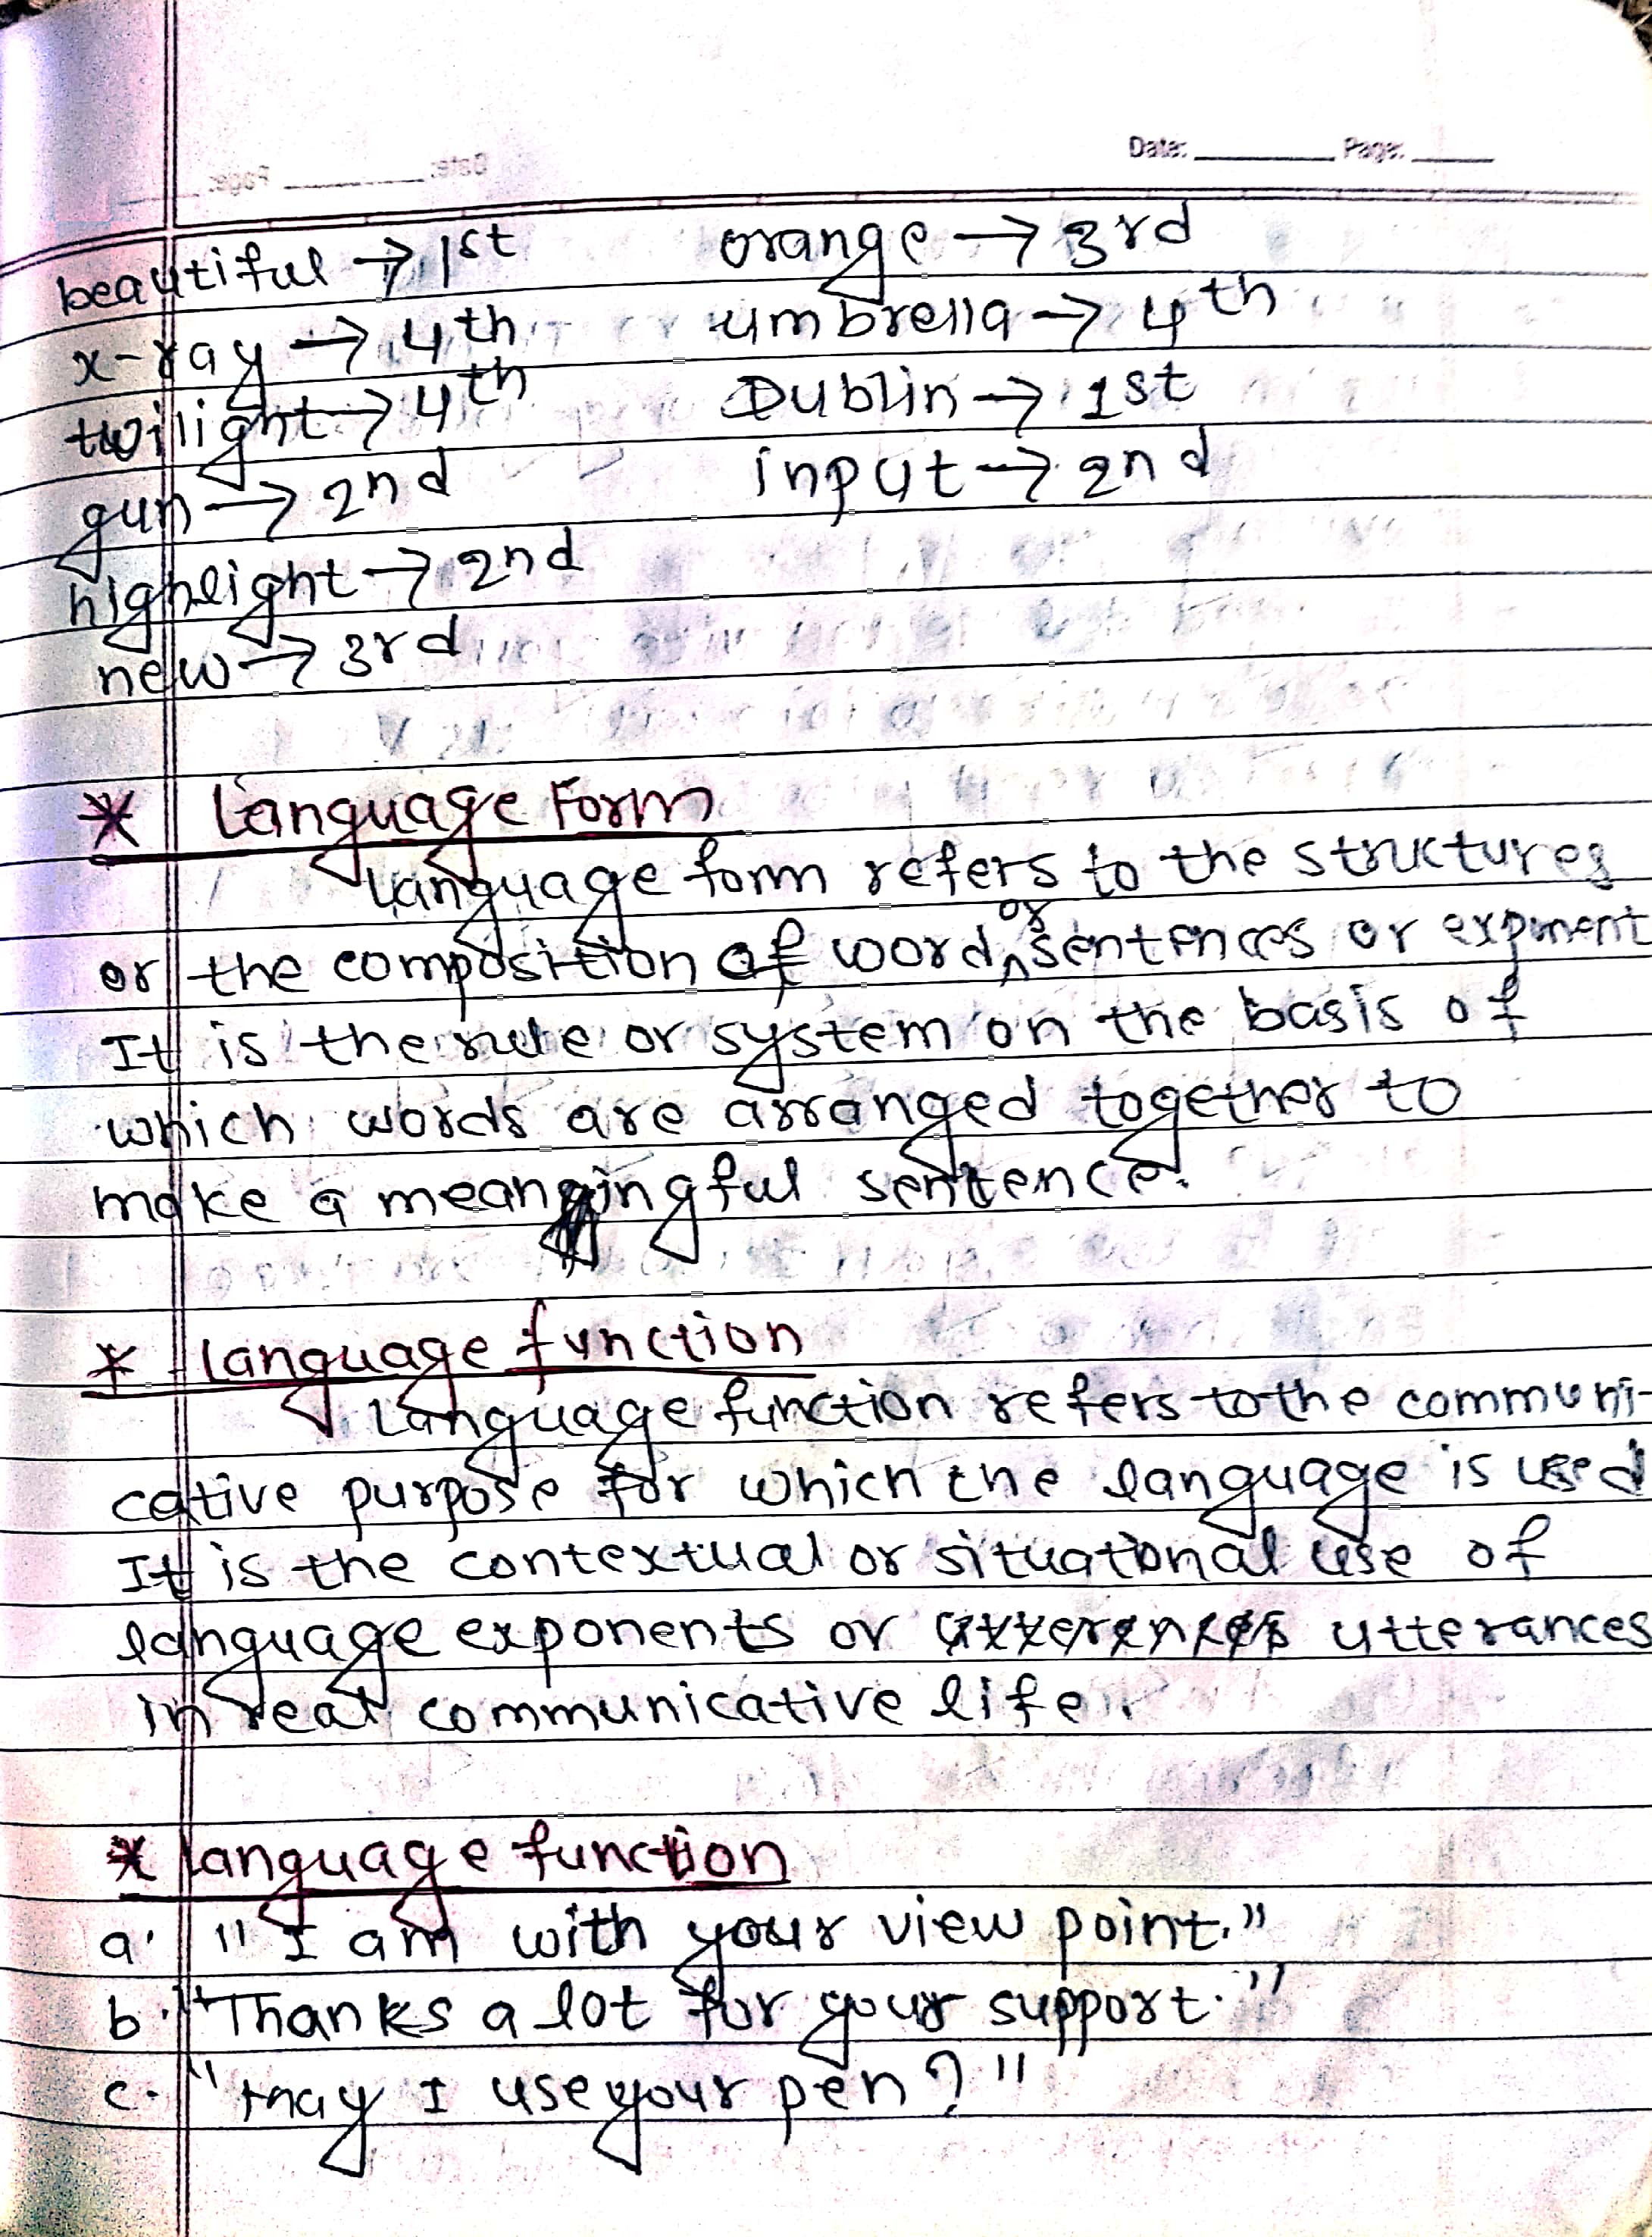 Date: ________ Page: ______
beautiful → 1st orange → 3rd
x-ray → 4th umbrella → 4th
twilight → 4th Dublin → 1st
gun → 2nd input → 2nd
highlight → 2nd
new → 3rd
* Language Form
Language form refers to the structures
or the composition of word or sentences or exponent
It is the rule or system on the basis of
which words are arranged together to
make a meaningful sentence.
* Language function
Language function refers to the communi-
cative purpose for which the language is used
It is the contextual or situational use of
language exponents or utterances
in real communicative life.
* language function
a. "I am with your view point."
b. "Thanks a lot for your support."
c. "May I use your pen?"